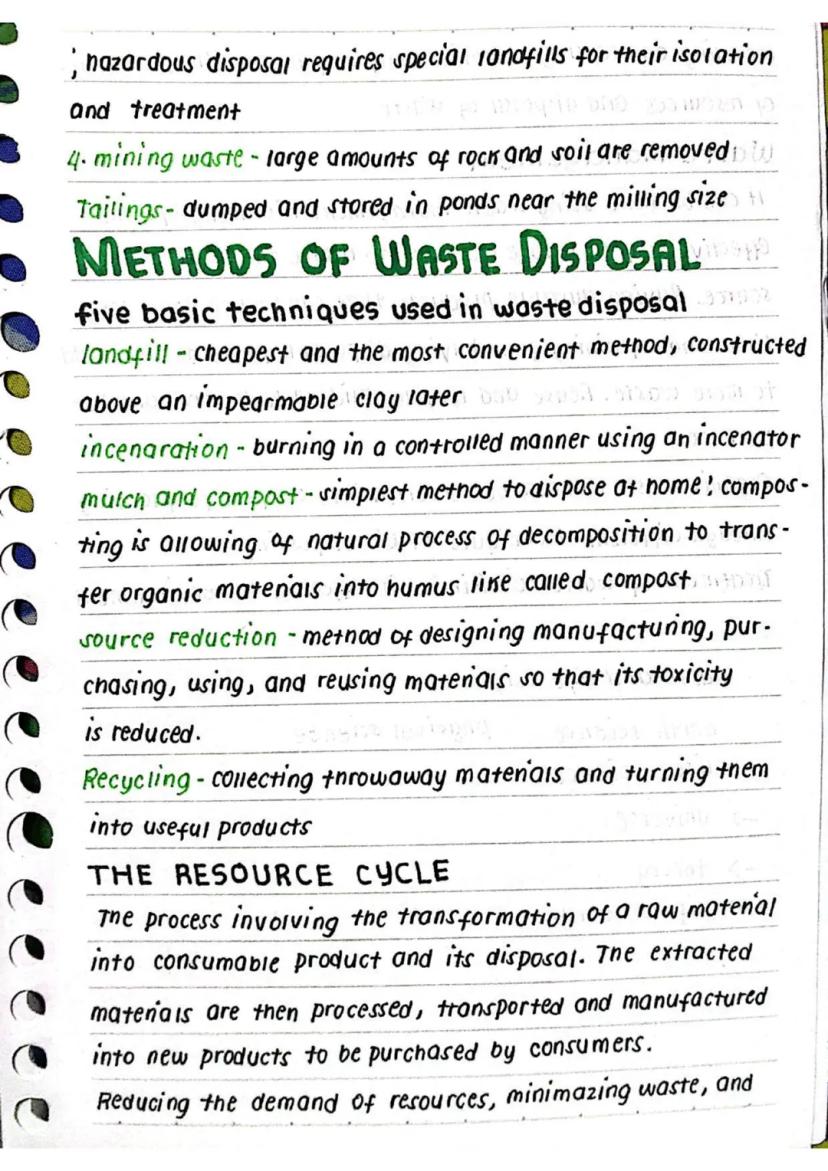 ; hazardous disposal requires special landfills for their isolation
and treatment
4. mining waste - large amounts of rock and soil are removed.
Tailings - dumped and stored in ponds near the milling size
METHODS OF WASTE DISPOSAL
five basic techniques used in waste disposal
landfill - cheapest and the most convenient method, constructed
above an impearmable clay later
incenaration - burning in a controlled manner using an incenator
mulch and compost - simplest method to dispose at home! compos-
ting is allowing of natural process of decomposition to trans-
fer organic materials into humus like called compost
source reduction - method of designing manufacturing, pur-
chasing, using, and reusing materials so that its toxicity
is reduced.
Recycling - collecting throwaway materials and turning them
into useful products
THE RESOURCE CYCLE
The process involving the transformation of a raw material
into consumable product and its disposal. The extracted
materials are then processed, transported and manufactured
into new products to be purchased by consumers.
Reducing the demand of resources, minimazing waste, and